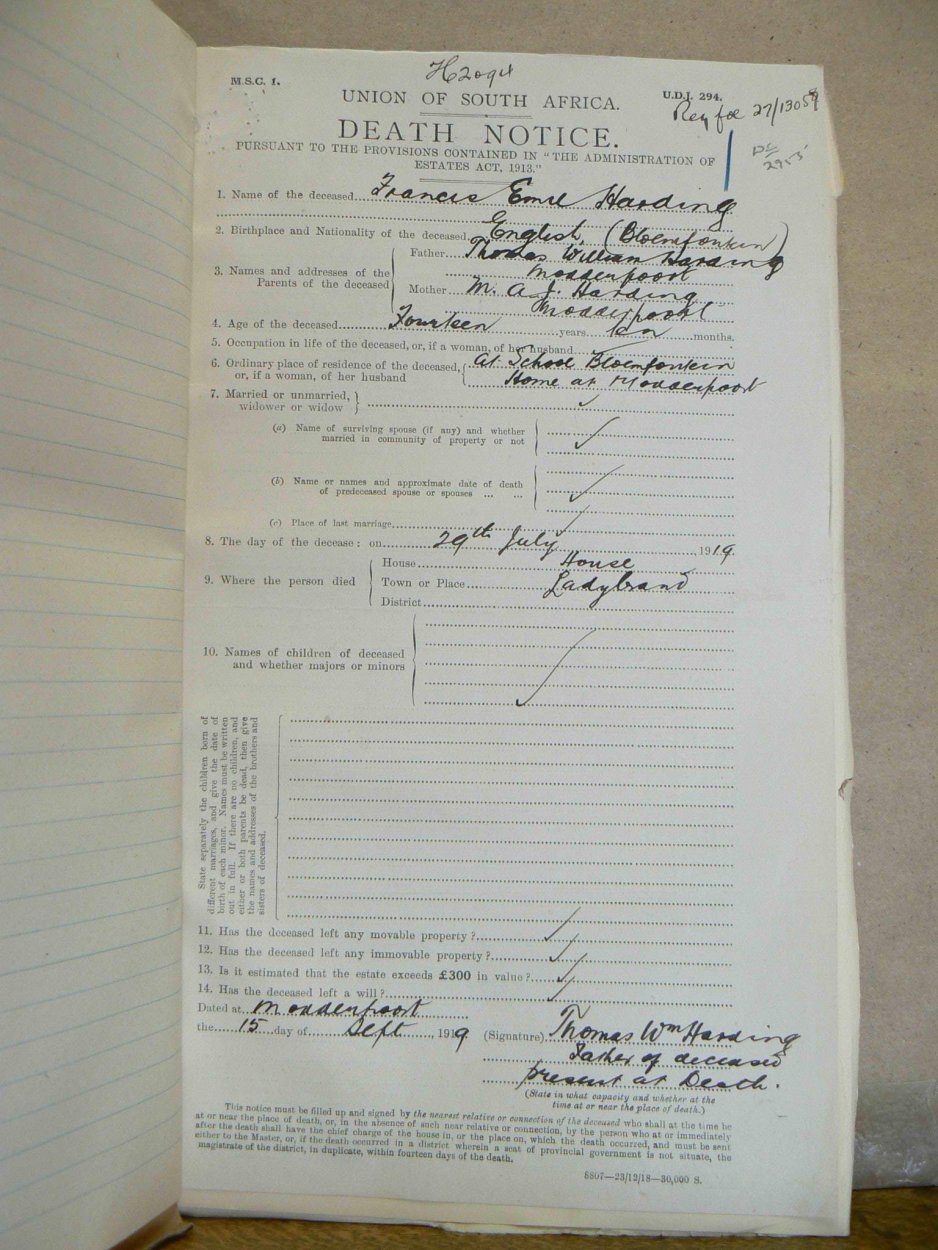 M.S.C. 1.
UNION OF SOUTH AFRICA.
U.D.J. 294.
27/13059
DEATH NOTICE.
PURSUANT TO THE PROVISIONS CONTAINED IN "THE ADMINISTRATION OF
ESTATES ACT, 1913."
1. Name of the deceased Francis Emil Harding
2. Birthplace and Nationality of the deceased English, (Bloemfontein)
3. Names and addresses of the Parents of the deceased
Father Thomas William Harding
Modderpoort
Mother M. A. J. Harding
Modderpoort
4. Age of the deceased Fourteen years ten months.
5. Occupation in life of the deceased, or, if a woman, of her husband
6. Ordinary place of residence of the deceased, At School Bloemfontein
or, if a woman, of her husband Home at Modderpoort
7. Married or unmarried,
widower or widow
(a) Name of surviving spouse (if any) and whether
married in community of property or not
(b) Name or names and approximate date of death
of predeceased spouse or spouses ... ...
(c) Place of last marriage
8. The day of the decease: on 29th July, 1919
9. Where the person died
House House
Town or Place Ladybrand
District
10. Names of children of deceased
and whether majors or minors
State separately the children born of
different marriages, and give the date of
birth of each minor. Names must be written
out in full. If there are no children, and
either or both parents be dead, then give
the names and addresses of the brothers and
sisters of deceased.
11. Has the deceased left any movable property?
12. Has the deceased left any immovable property?
13. Is it estimated that the estate exceeds £300 in value?
14. Has the deceased left a will?
Dated at Modderpoort
the 15 day of Sept, 1919
(Signature) Thomas Wm Harding
Father of deceased
present at Death.
(State in what capacity and whether at the
time at or near the place of death.)
This notice must be filled up and signed by the nearest relative or connection of the deceased who shall at the time be
at or near the place of death, or, in the absence of such near relative or connection, by the person who at or immediately
after the death shall have the chief charge of the house in, or the place on, which the death occurred, and must be sent
either to the Master, or, if the death occurred in a district wherein a seat of provincial government is not situate, the
magistrate of the district, in duplicate, within fourteen days of the death.
8807—23/12/18—30,000 S.